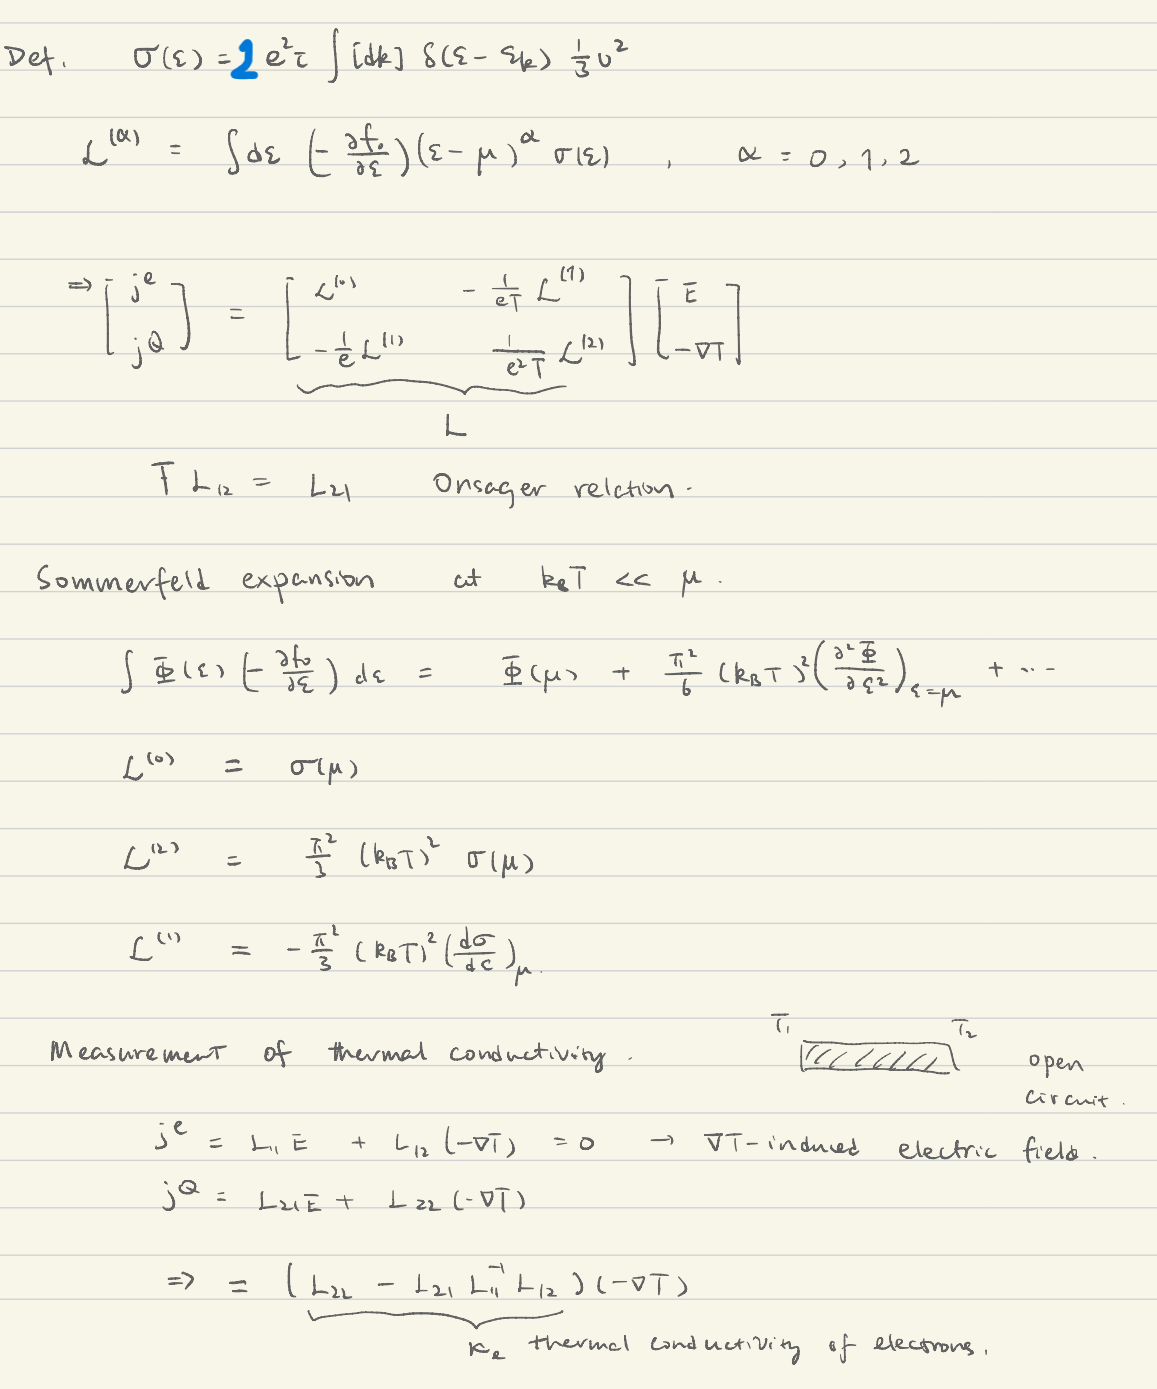 Def. σ(ε) = 2 e²τ ∫ [dk] δ(ε - ε_k) 1/3 v²
L^(α) = ∫dε (- ∂f₀/∂ε)(ε - μ)^α σ(ε) , α = 0, 1, 2
⇒ [j^e ; j^Q] = [L^(0) , - 1/(eT) L^(1) ; - 1/e L^(1) , 1/(e²T) L^(2)] [E ; -∇T]
L
T L₁₂ = L₂₁ Onsager relation.
Sommerfeld expansion at k_BT << μ.
∫ Φ(ε) (- ∂f₀/∂ε) dε = Φ(μ) + π²/6 (k_BT)² (∂²Φ/∂ε²)_ε=μ + ...
L^(0) = σ(μ)
L^(2) = π²/3 (k_BT)² σ(μ)
L^(1) = - π²/3 (k_BT)² (dσ/dε)_μ.
T₁ T₂
Measurement of thermal conductivity. open
circuit.
j^e = L₁₁ E + L₁₂ (-∇T) = 0 → ∇T-induced electric field.
j^Q = L₂₁E + L₂₂ (-∇T)
⇒ = (L₂₂ - L₂₁ L₁₁⁻¹ L₁₂)(-∇T)
κ_e thermal conductivity of electrons.